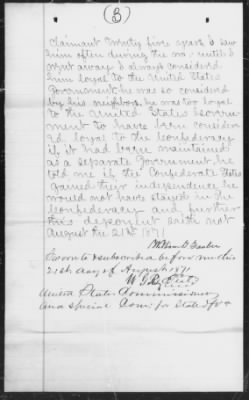 (3)
Claimant twenty five years I saw
him often during the war until I
went away I always considered
him loyal to the United States
Government he was so considered
by his neighbors, he was too loyal
to the United States Govern-
ment to have been consider-
ed loyal to the Confederacy
if it had been maintained
as a separate Government, he
told me if the Confederate States
gained their independence he
would not have stayed in the
Confederacy and further
this deponent saith not
August the 21st 1871
William D
Sworn to & subscribed before me this
21st day of August 1871
W
United States Commissioner
and special Com: for State of